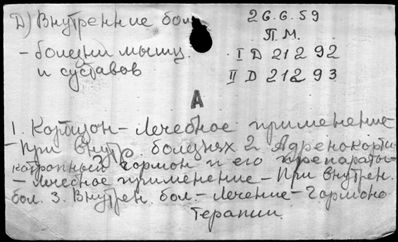 Д) Внутренние бол.
- болезни мышц
и суставов
26.6.59
П.М.
I D 21292
II D 21293
А
1. Кортизон - Лечебное применение
- При внутр. болезнях 2. Адренокорти
котропный гормон и его препараты
- Лечебное применение - При внутрен.
бол. 3. Внутрен. бол. - Лечение - Гормоно
терапии.